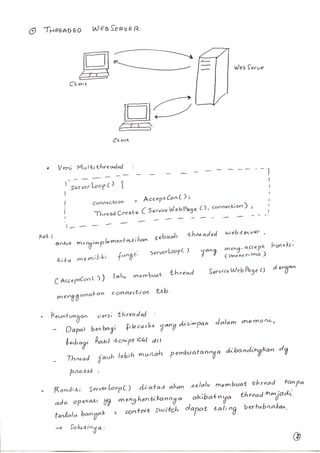 ② THREADED WEB SERVER.
Web Server
Client
Client
• Versi Multithreaded
ServerLoop() {
connection = AcceptCon();
ThreadCreate (ServiceWebPage(), connection);
Ket:
untuk mengimplementasikan sebuah threaded webserver,
kita memiliki fungsi ServerLoop() yang meng-accept koneksi
(menerima)
(AcceptCon()) lalu membuat thread ServiceWebPage() dengan
menggunakan connection tsb.
• Keuntungan versi threaded :
- Dapat berbagi filecache yang disimpan dalam memori,
berbagi hasil script CGI dll
- Thread jauh lebih murah pembuatannya dibandingkan dg
proses.
• Kondisi ServerLoop() diatas akan selalu membuat thread tanpa
ada operasi yg menghentikannya akibatnya thread menjadi
terlalu banyak & context switch dapat saling bertabrakan.
→ Solusinya :